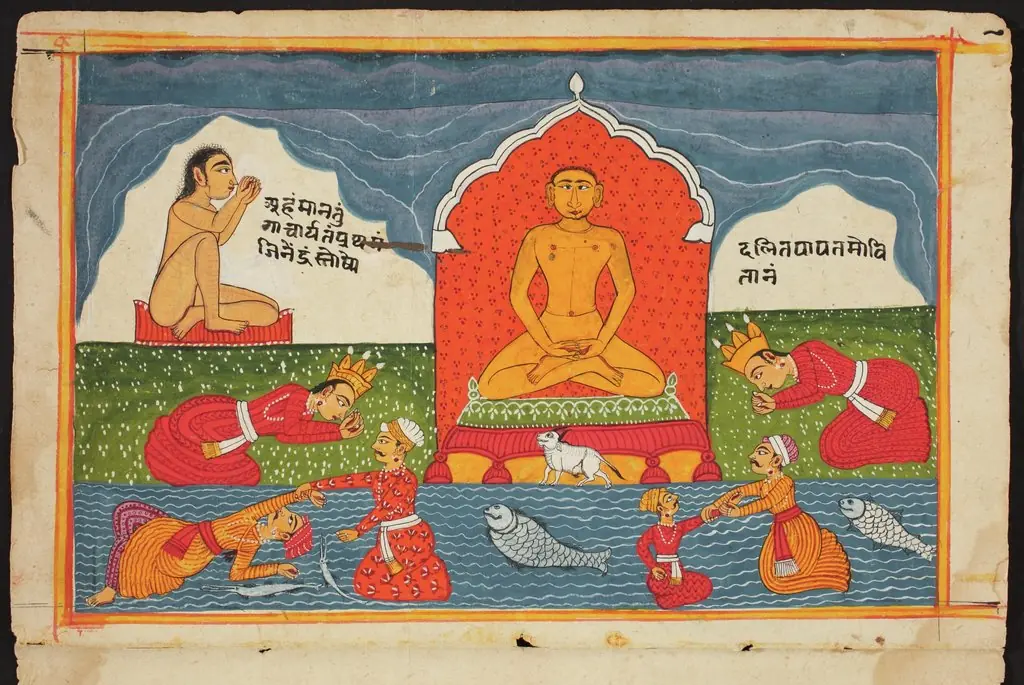 अहंमानतुं
गाचार्यतंप्रथमं
जिनेंद्रंस्तोष्ये
दलितपापतमोवि
तानं